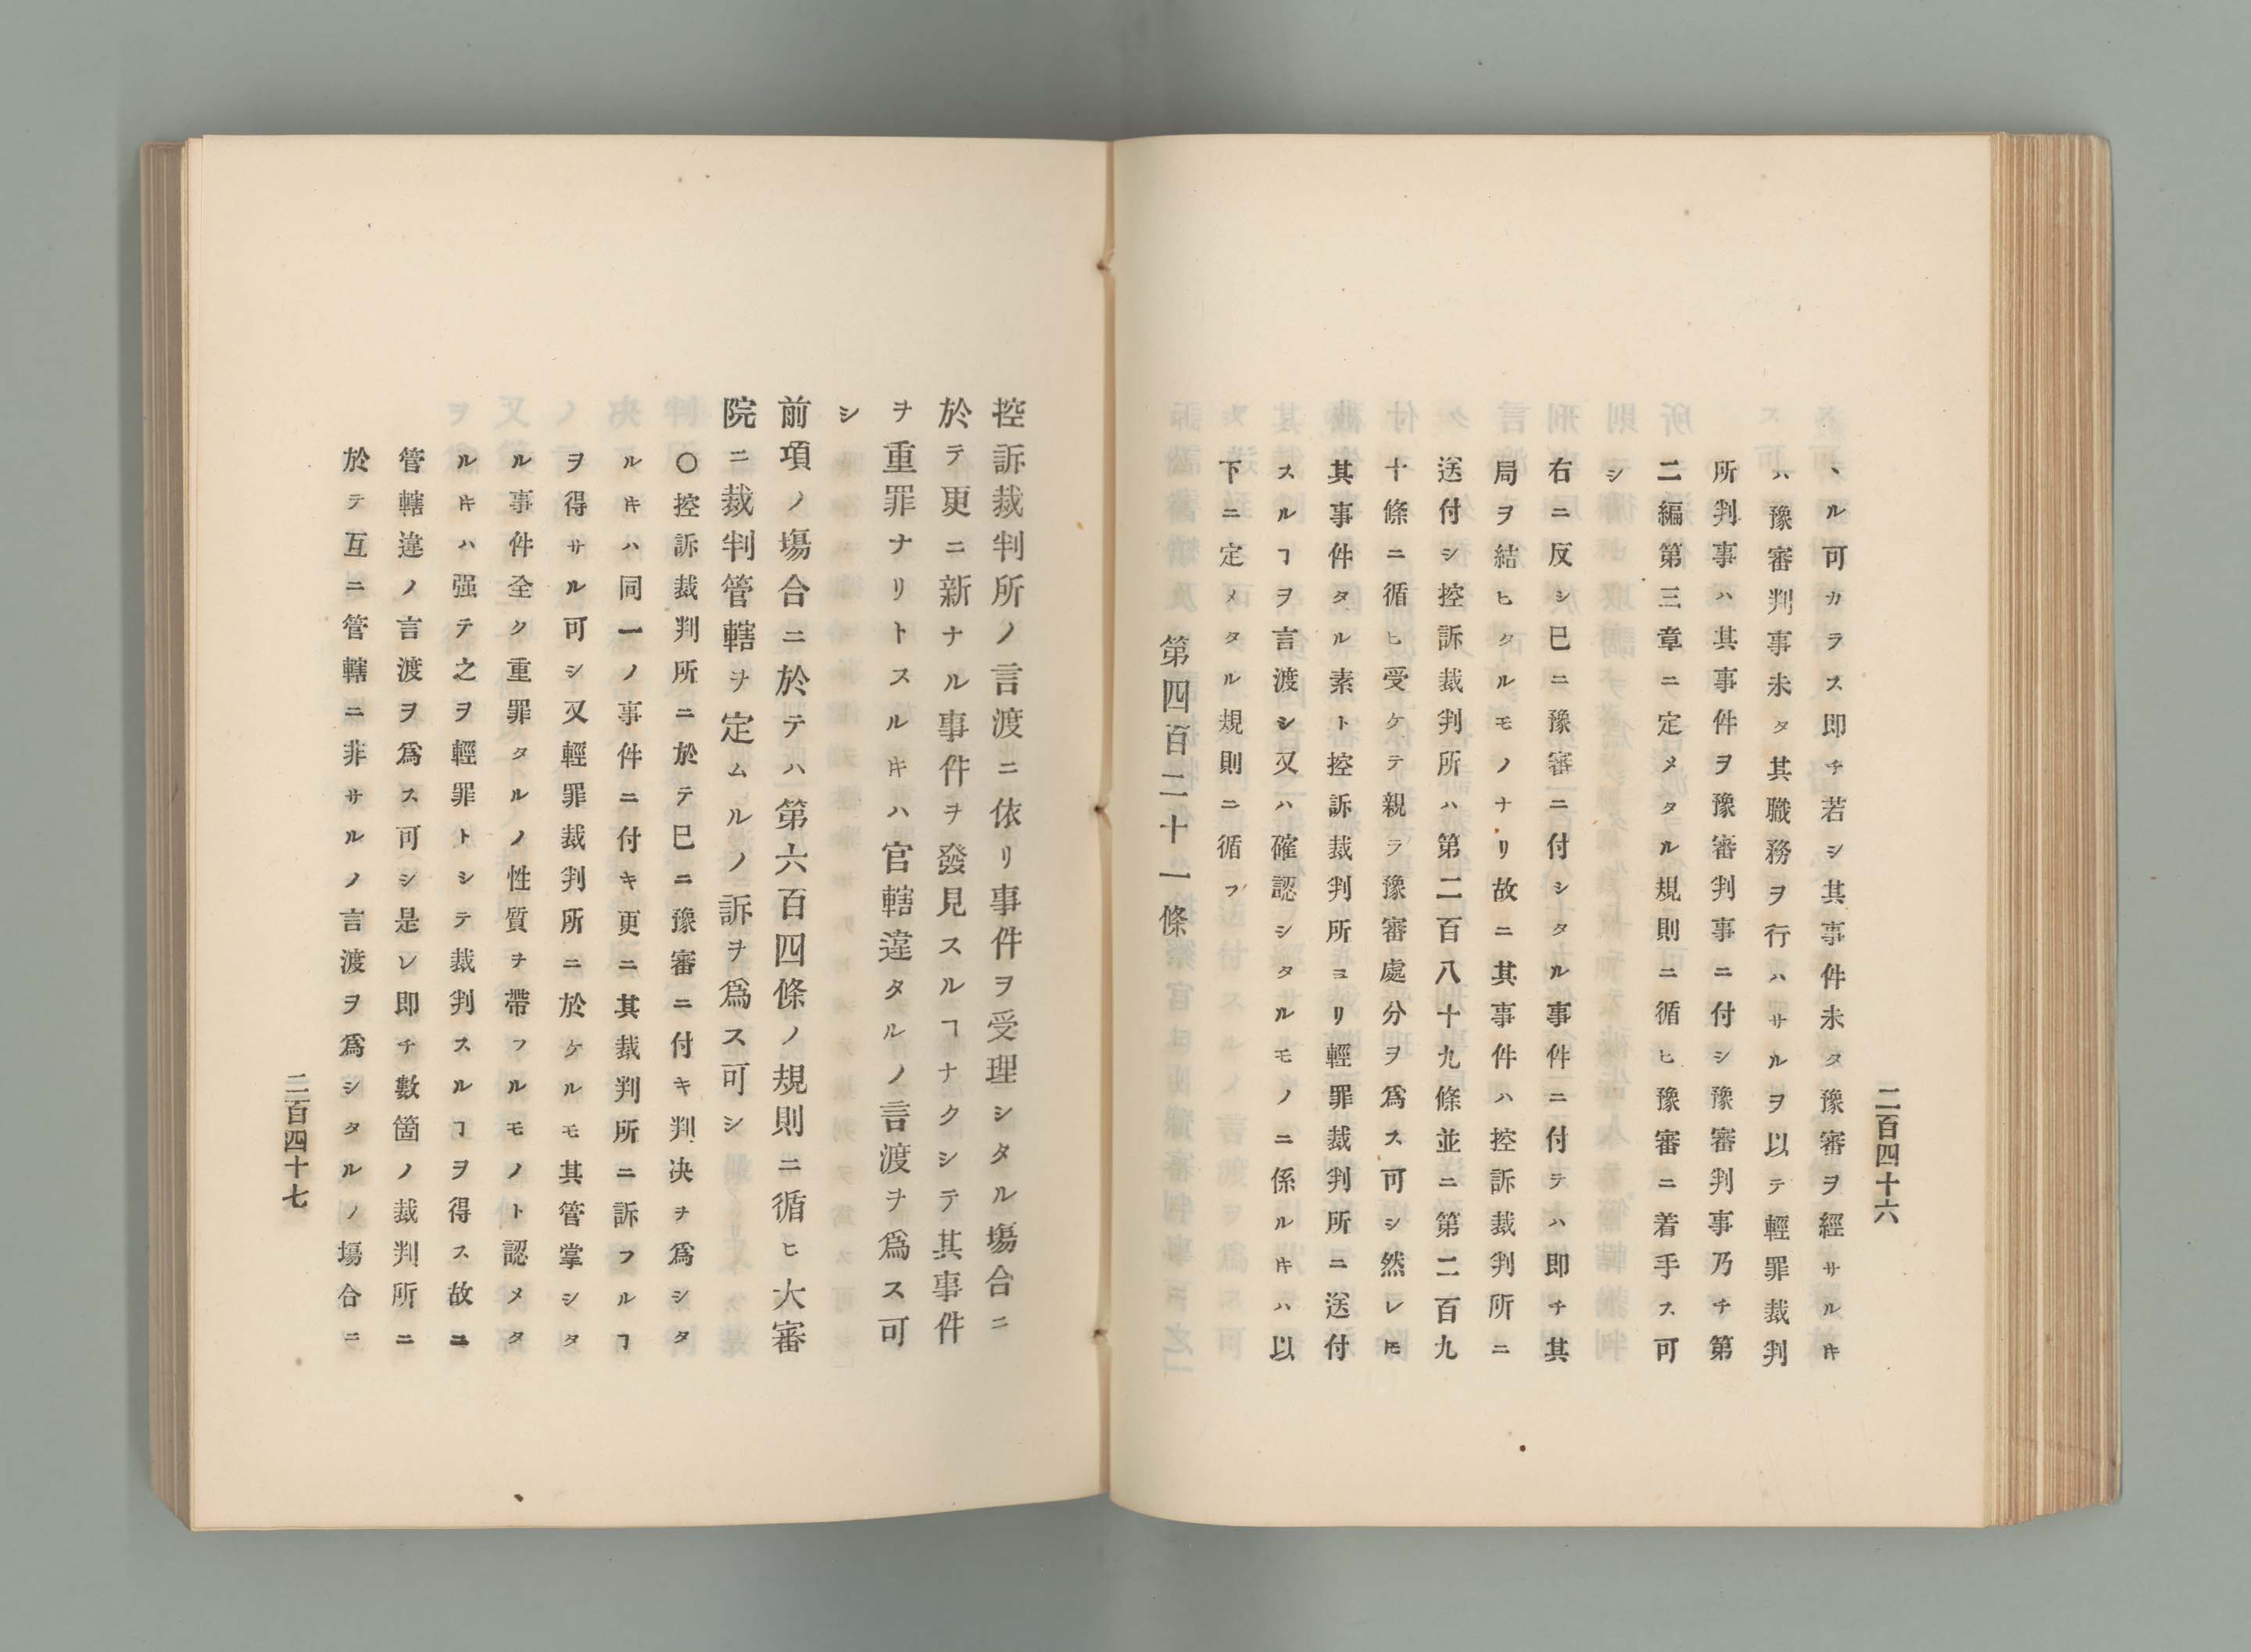 二百四十六
ヽル可カラス即チ若シ其事件未タ豫審ヲ經サルキ
ハ豫審判事未タ其職務ヲ行ハサルヲ以テ輕罪裁判
所判事ハ其事件ヲ豫審判事ニ付シ豫審判事乃チ第
二編第三章ニ定メタル規則ニ循ヒ豫審ニ着手ス可
シ
右ニ反シ已ニ豫審ニ付シタル事件ニ付テハ即チ其
局ヲ結ヒタルモノナリ故ニ其事件ハ控訴裁判所ニ
送付シ控訴裁判所ハ第二百八十九條並ニ第二百九
十條ニ循ヒ受ケテ親ラ豫審處分ヲ爲ス可シ然レ𪜈
其事件タル素ト控訴裁判所ヨリ輕罪裁判所ニ送付
スルヿヲ言渡シ又ハ確認シタルモノニ係ルキハ以
下ニ定メタル規則ニ循フ
第四百二十一條
控訴裁判所ノ言渡ニ依リ事件ヲ受理シタル塲合ニ
於テ更ニ新ナル事件ヲ發見スルヿナクシテ其事件
ヲ重罪ナリトスルキハ官轄違タルノ言渡ヲ爲ス可
シ
前項ノ塲合ニ於テハ第六百四條ノ規則ニ循ヒ大審
院ニ裁判管轄ヲ定ムルノ訴ヲ爲ス可シ
〇控訴裁判所ニ於テ已ニ豫審ニ付キ判决ヲ爲シタ
ルキハ同一ノ事件ニ付キ更ニ其裁判所ニ訴フルヿ
ヲ得サル可シ又輕罪裁判所ニ於ケルモ其管掌シタ
ル事件全ク重罪タルノ性質ヲ帶フルモノト認メタ
ルキハ强テ之ヲ輕罪トシテ裁判スルヿヲ得ス故ニ
管轄違ノ言渡ヲ爲ス可シ是レ即チ數箇ノ裁判所ニ
於テ互ニ管轄ニ非サルノ言渡ヲ爲シタルノ塲合ニ
二百四十七